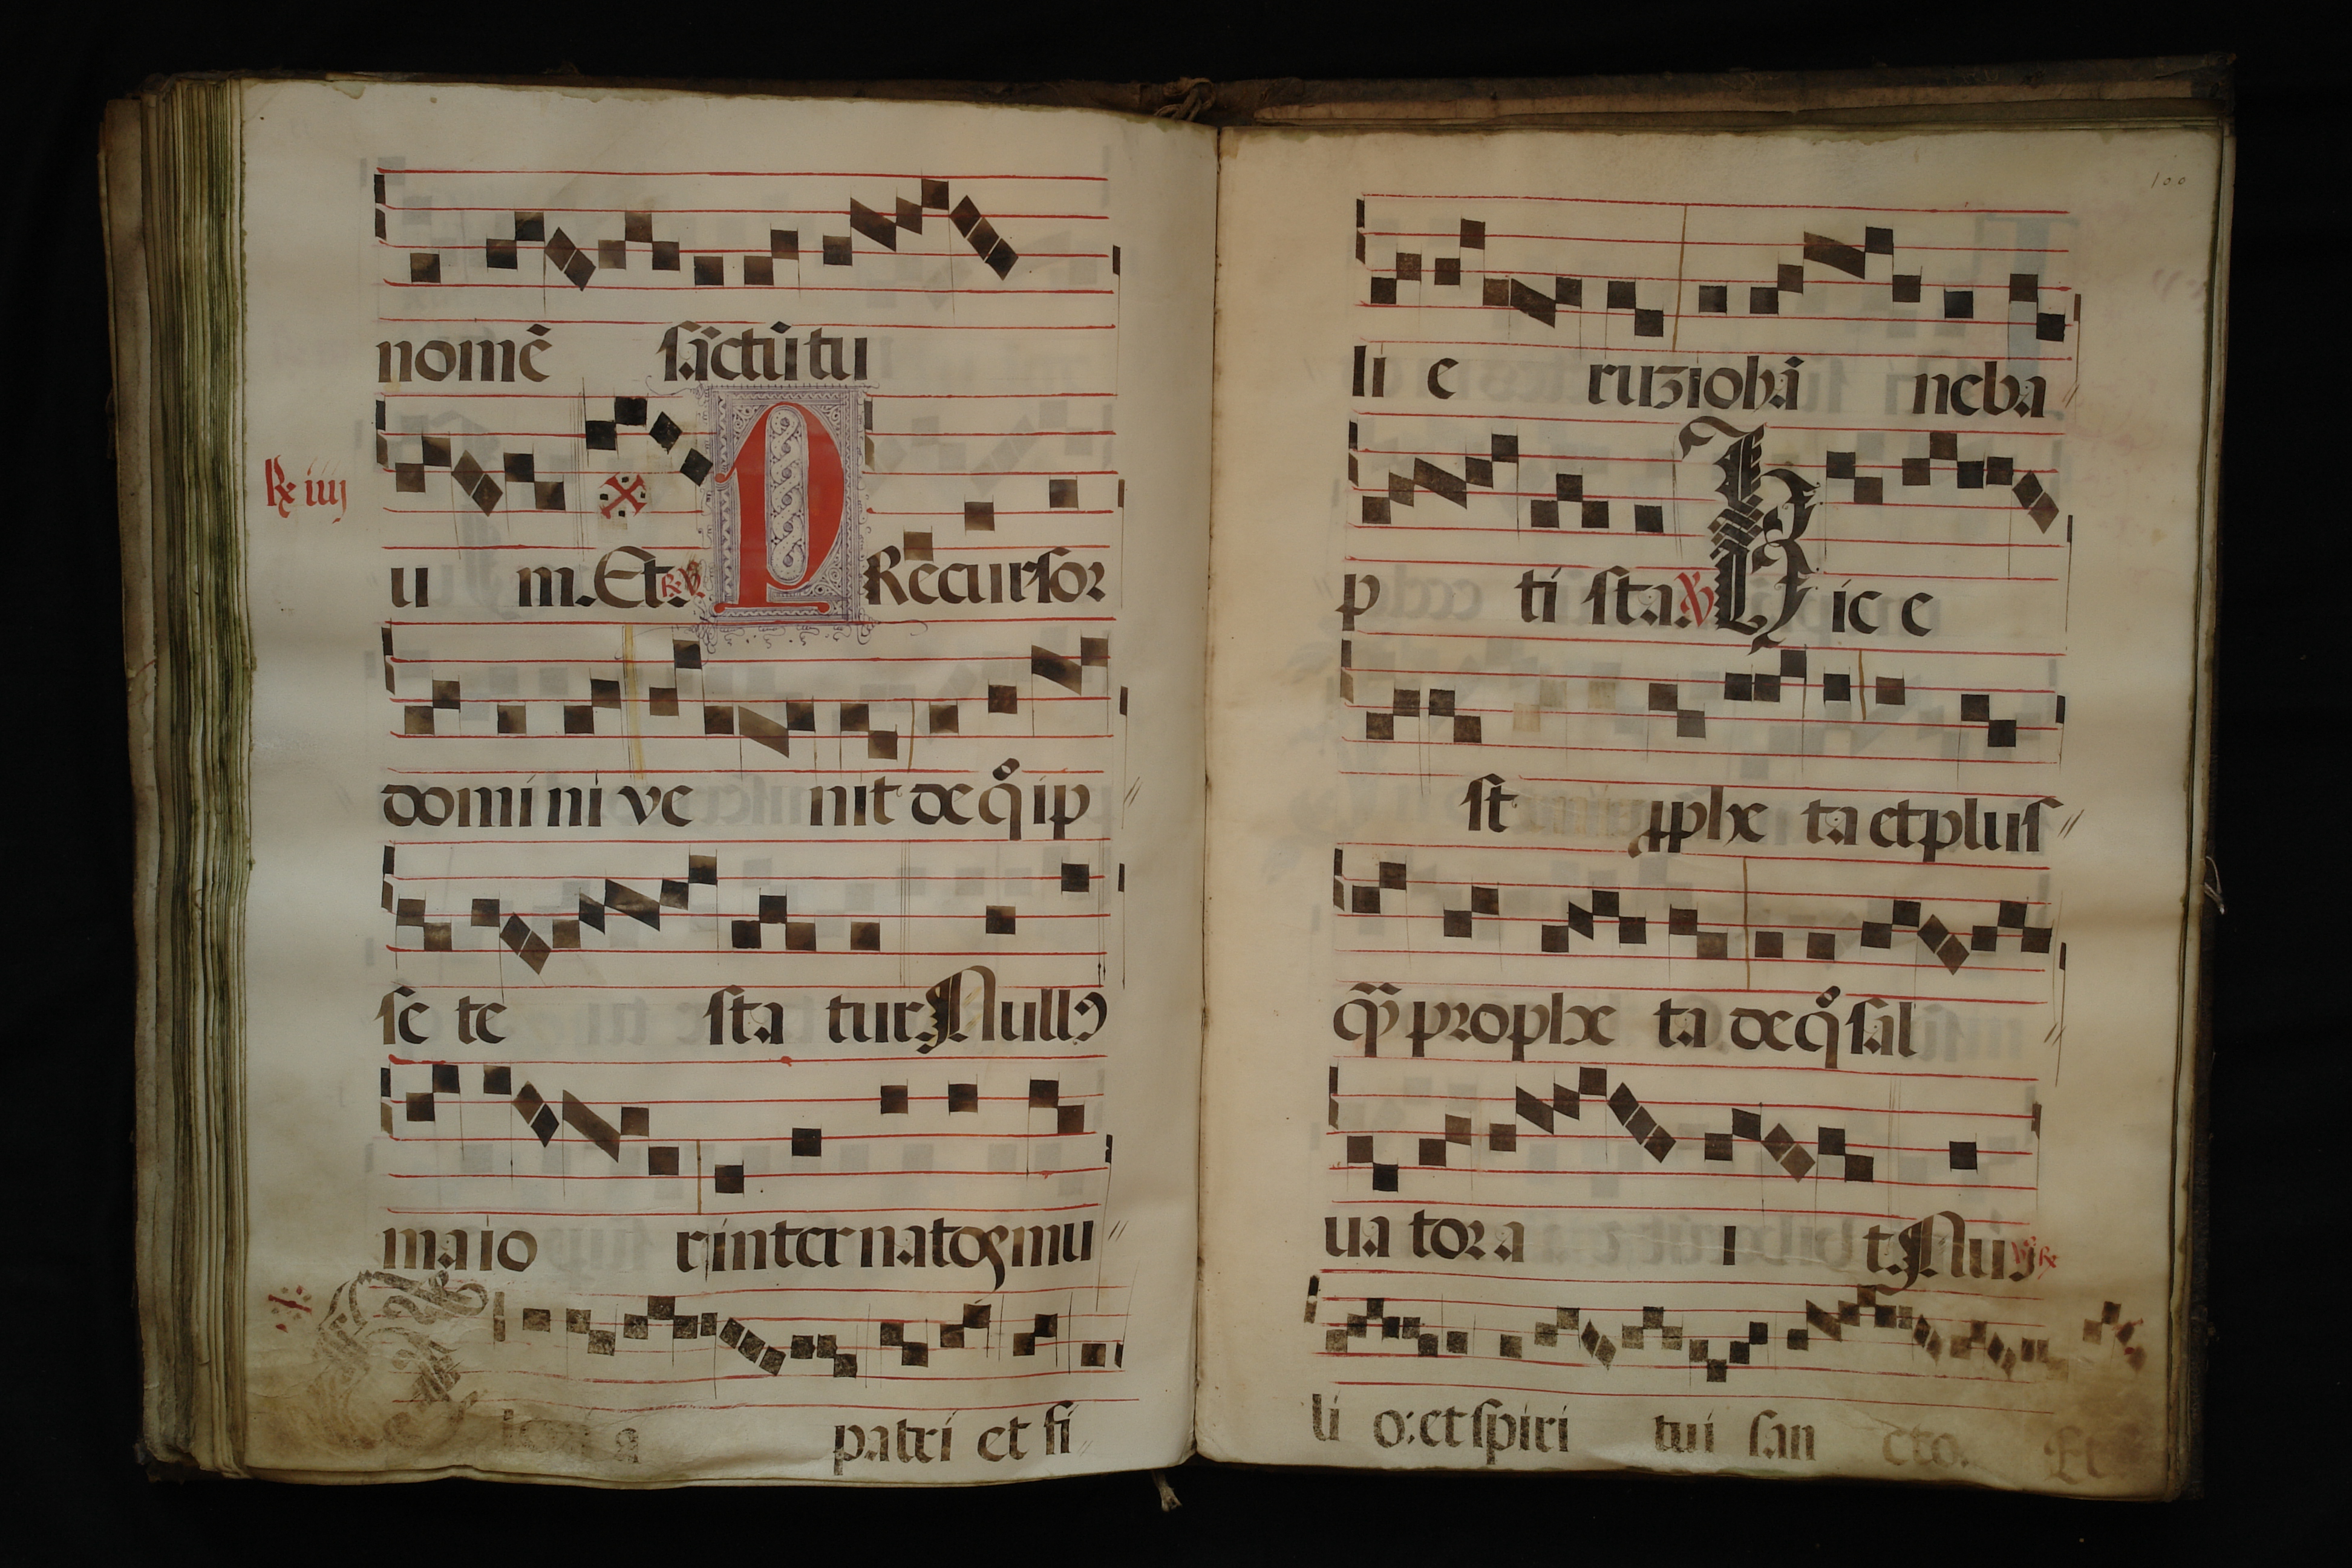 nomẽ sãctũ tu
℟ iiij
u m. Et. ℟ ℣. PRecursor
domini ve nit de q̊ ip
se te sta tur. Nullꝰ
maio r inter natoꝝ mu
patri et fi
100
li e ruz iohã ne ba
p ti sta. ℣ Hic e
st ꝓphe ta et plus
q̃ȝ prophe ta de q̊ sal
ua tor a i t. Nuꝰ ℣ ℟
li o: et spiri tui san cto. Et